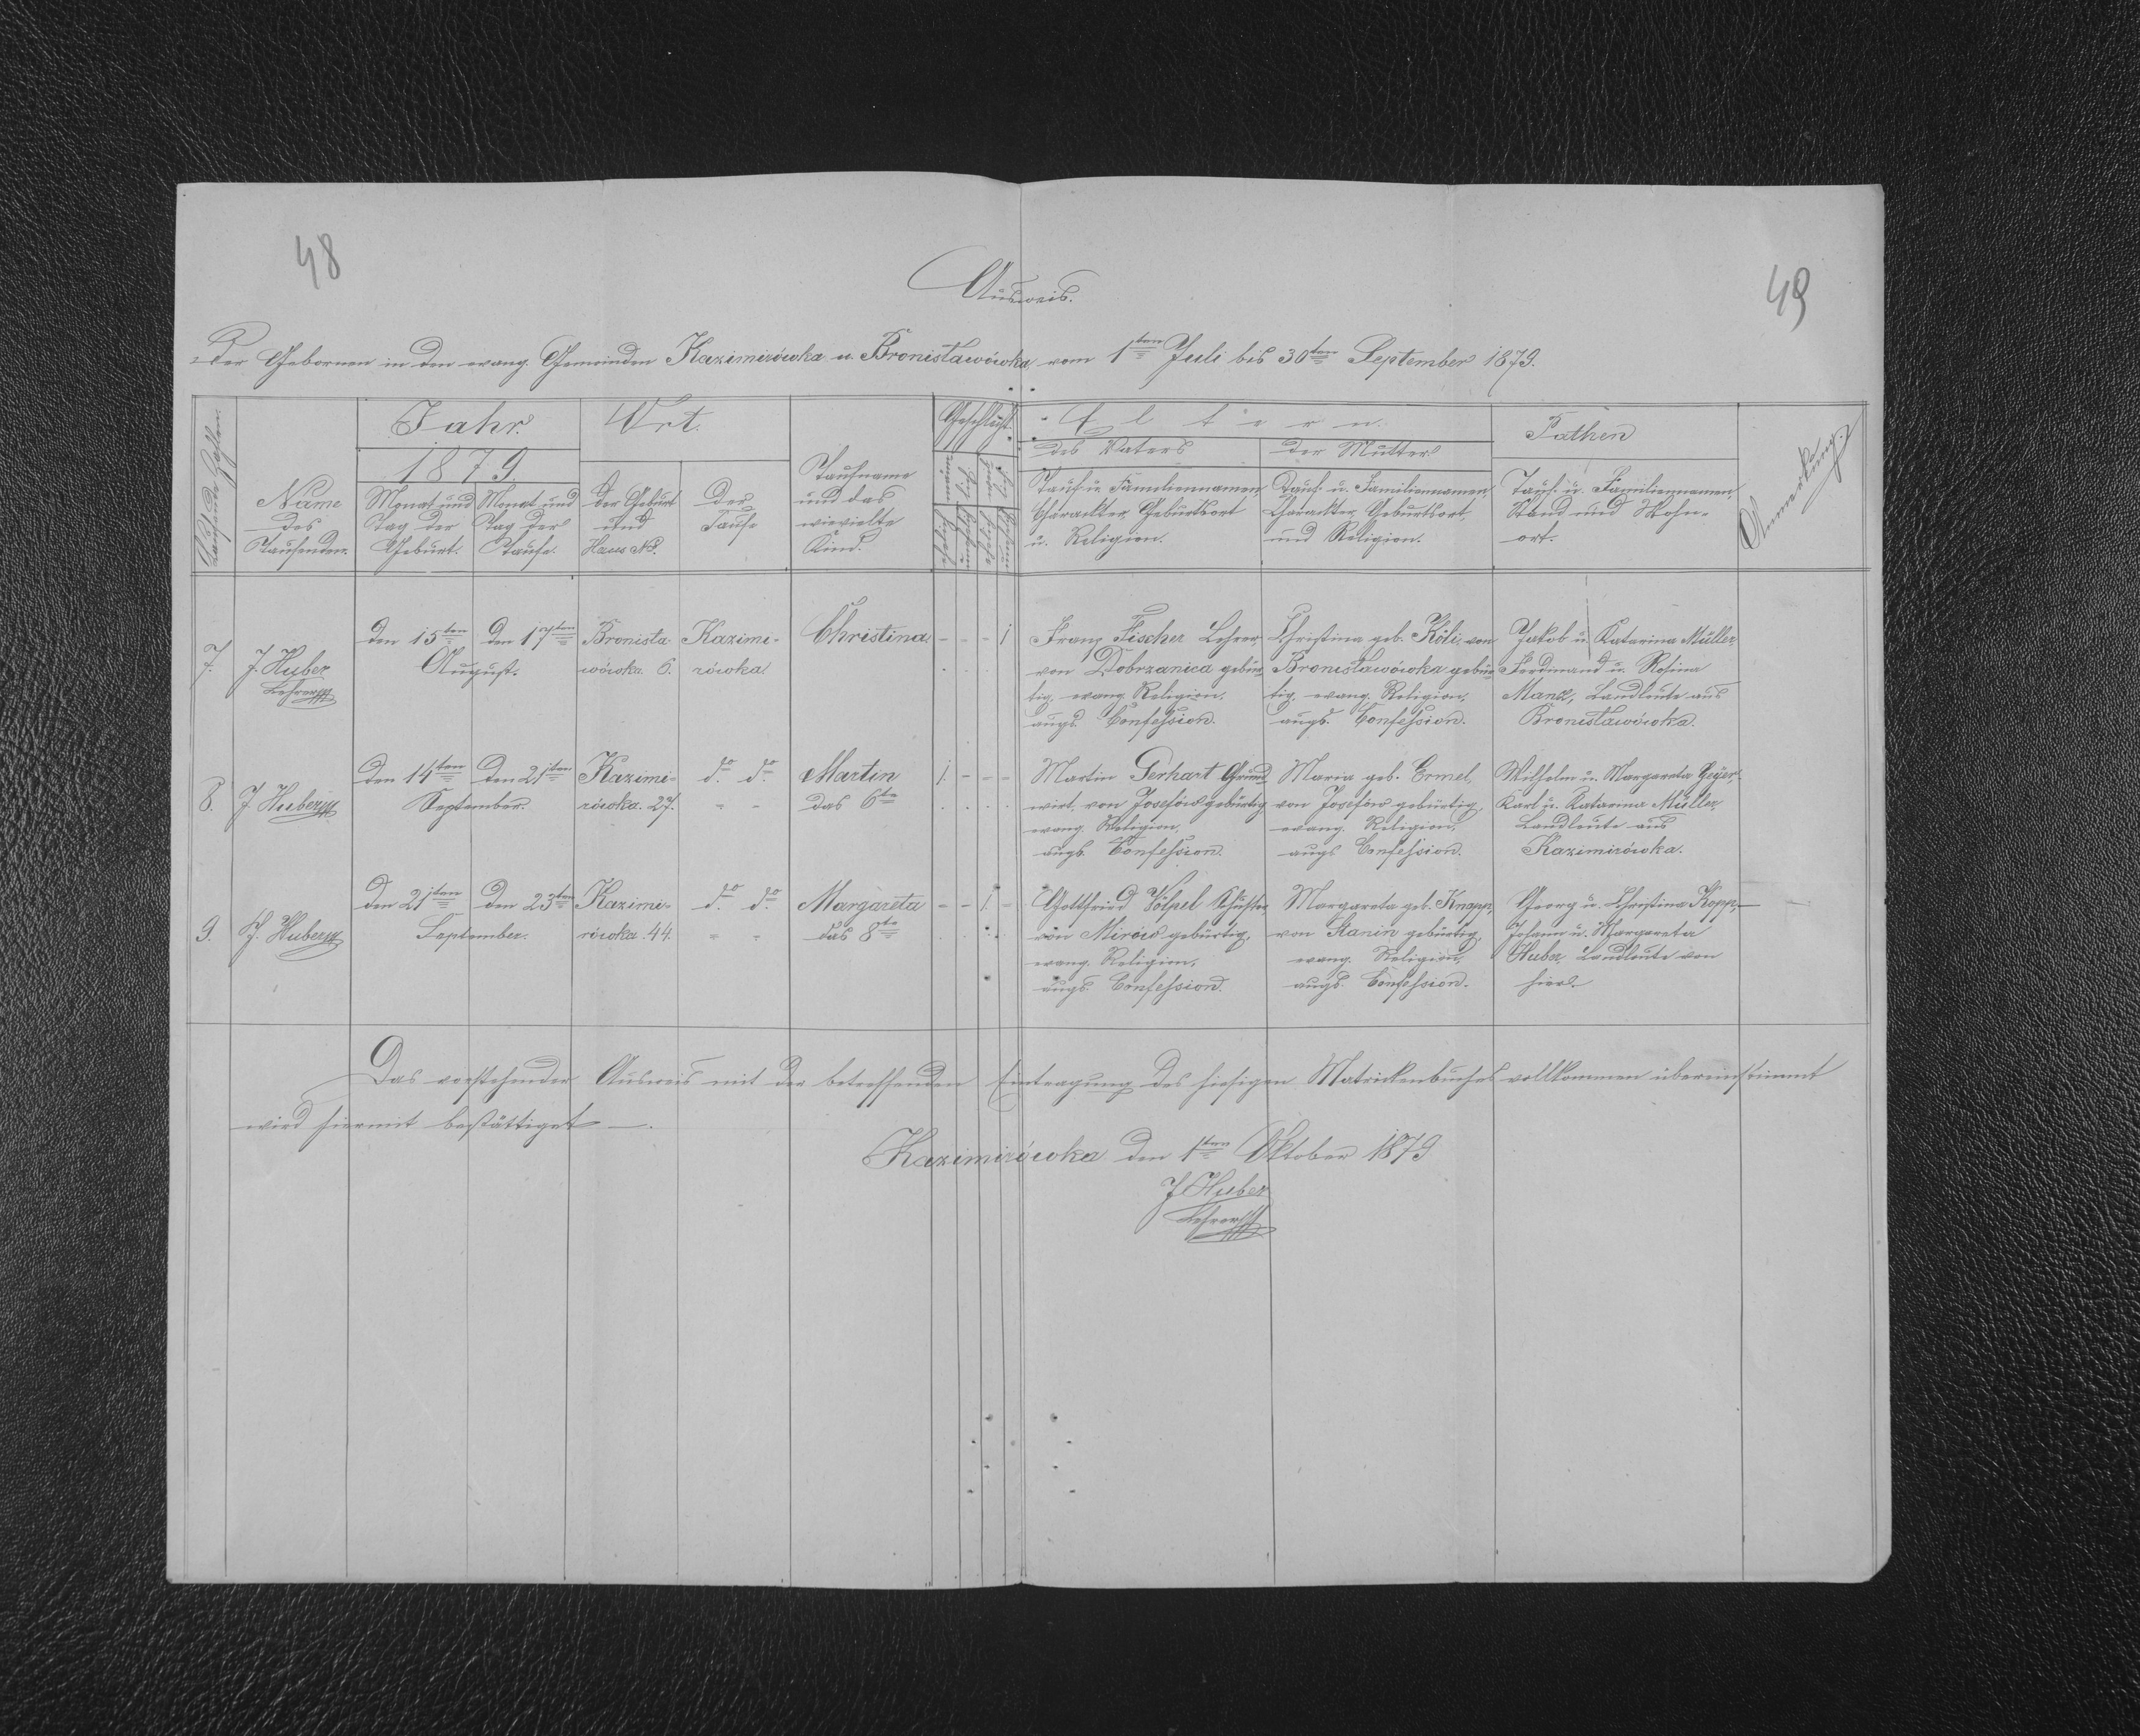 48
49
Ausweis.
Der Gebornen in den evang. Gemeinden Kazimirówka u. Bronisławówka, vom 1ten Juli bis 30ten September 1879.
Laufende Zahlen.
Name
des
Taufenden.
Jahr.
1879.
Monat und
Tag der
Geburt.
Monat und
Tag der
Taufe.
Ort.
Der Geburt
und
Haus No.
Der
Taufe
Taufname
und das
wievielte
Kind.
Geschlecht.
männlich
weiblich
ehelich
unehelich
ehelich
unehelich
Eltern.
des Vaters
Tauf- u. Familiennamen,
Charackter, Geburtsort
u. Religion.
der Mutter
Tauf- u. Familiennamen,
Charackter, Geburtsort,
und Religion.
Pathen
Tauf- u. Familiennamen,
Stand und Wohn-
ort.
Anmerkung.
7.
J. Huber
Lehrer
den 15ten
August.
den 17ten
Bronisła-
wówka 6.
Kazimi-
rówka.
Christina
- - - 1
Franz Fischer Lehrer,
von Dobrzanica gebür-
tig, evang. Religion,
augs. Confession.
Christina geb. Köli, von
Bronisławówka gebür-
tig, evang. Religion,
augs. Confession.
Jakob u. Katarina Müller,
Ferdinand u. Rosina
Manz, Landleute aus
Bronisławówka.
8.
J. Huber
den 14ten
September.
den 21ten
Kazimi-
rówka. 27.
do do
Martin
das 6te
1. - - -
Martin Gerhart Grund-
wirt, von Josefów gebürtig,
evang. Religion,
augs. Confession.
Maria geb. Ermel,
von Josefów gebürtig,
evang. Religion,
augs. Confession.
Wilhelm u. Margareta Geÿer,
Karl u. Katarina Müller,
Landleute aus
Kazimirówka.
9.
J. Huber
den 21ten
September.
den 23ten
Kazimi-
rówka. 44.
do do
Margareta
das 8te
- - 1. -
Gottfried Völpel Schuster,
von Mirów gebürtig,
evang. Religion,
augs. Confession.
Margareta geb. Knopp,
von Stanin gebürtig,
evang. Religion,
augs. Confession.
Georg u. Christina Kopp,
Johann u. Margareta
Huber, Landleute von
hier.
Das vorstehender Ausweis mit der betreffenden Eintragung des hiesigen Matrickenbuches vollkommen übereinstimmt
wird hiermit bestättiget —.
Kazimirówka den 1ten Oktober 1879
J. Huber
Lehrer